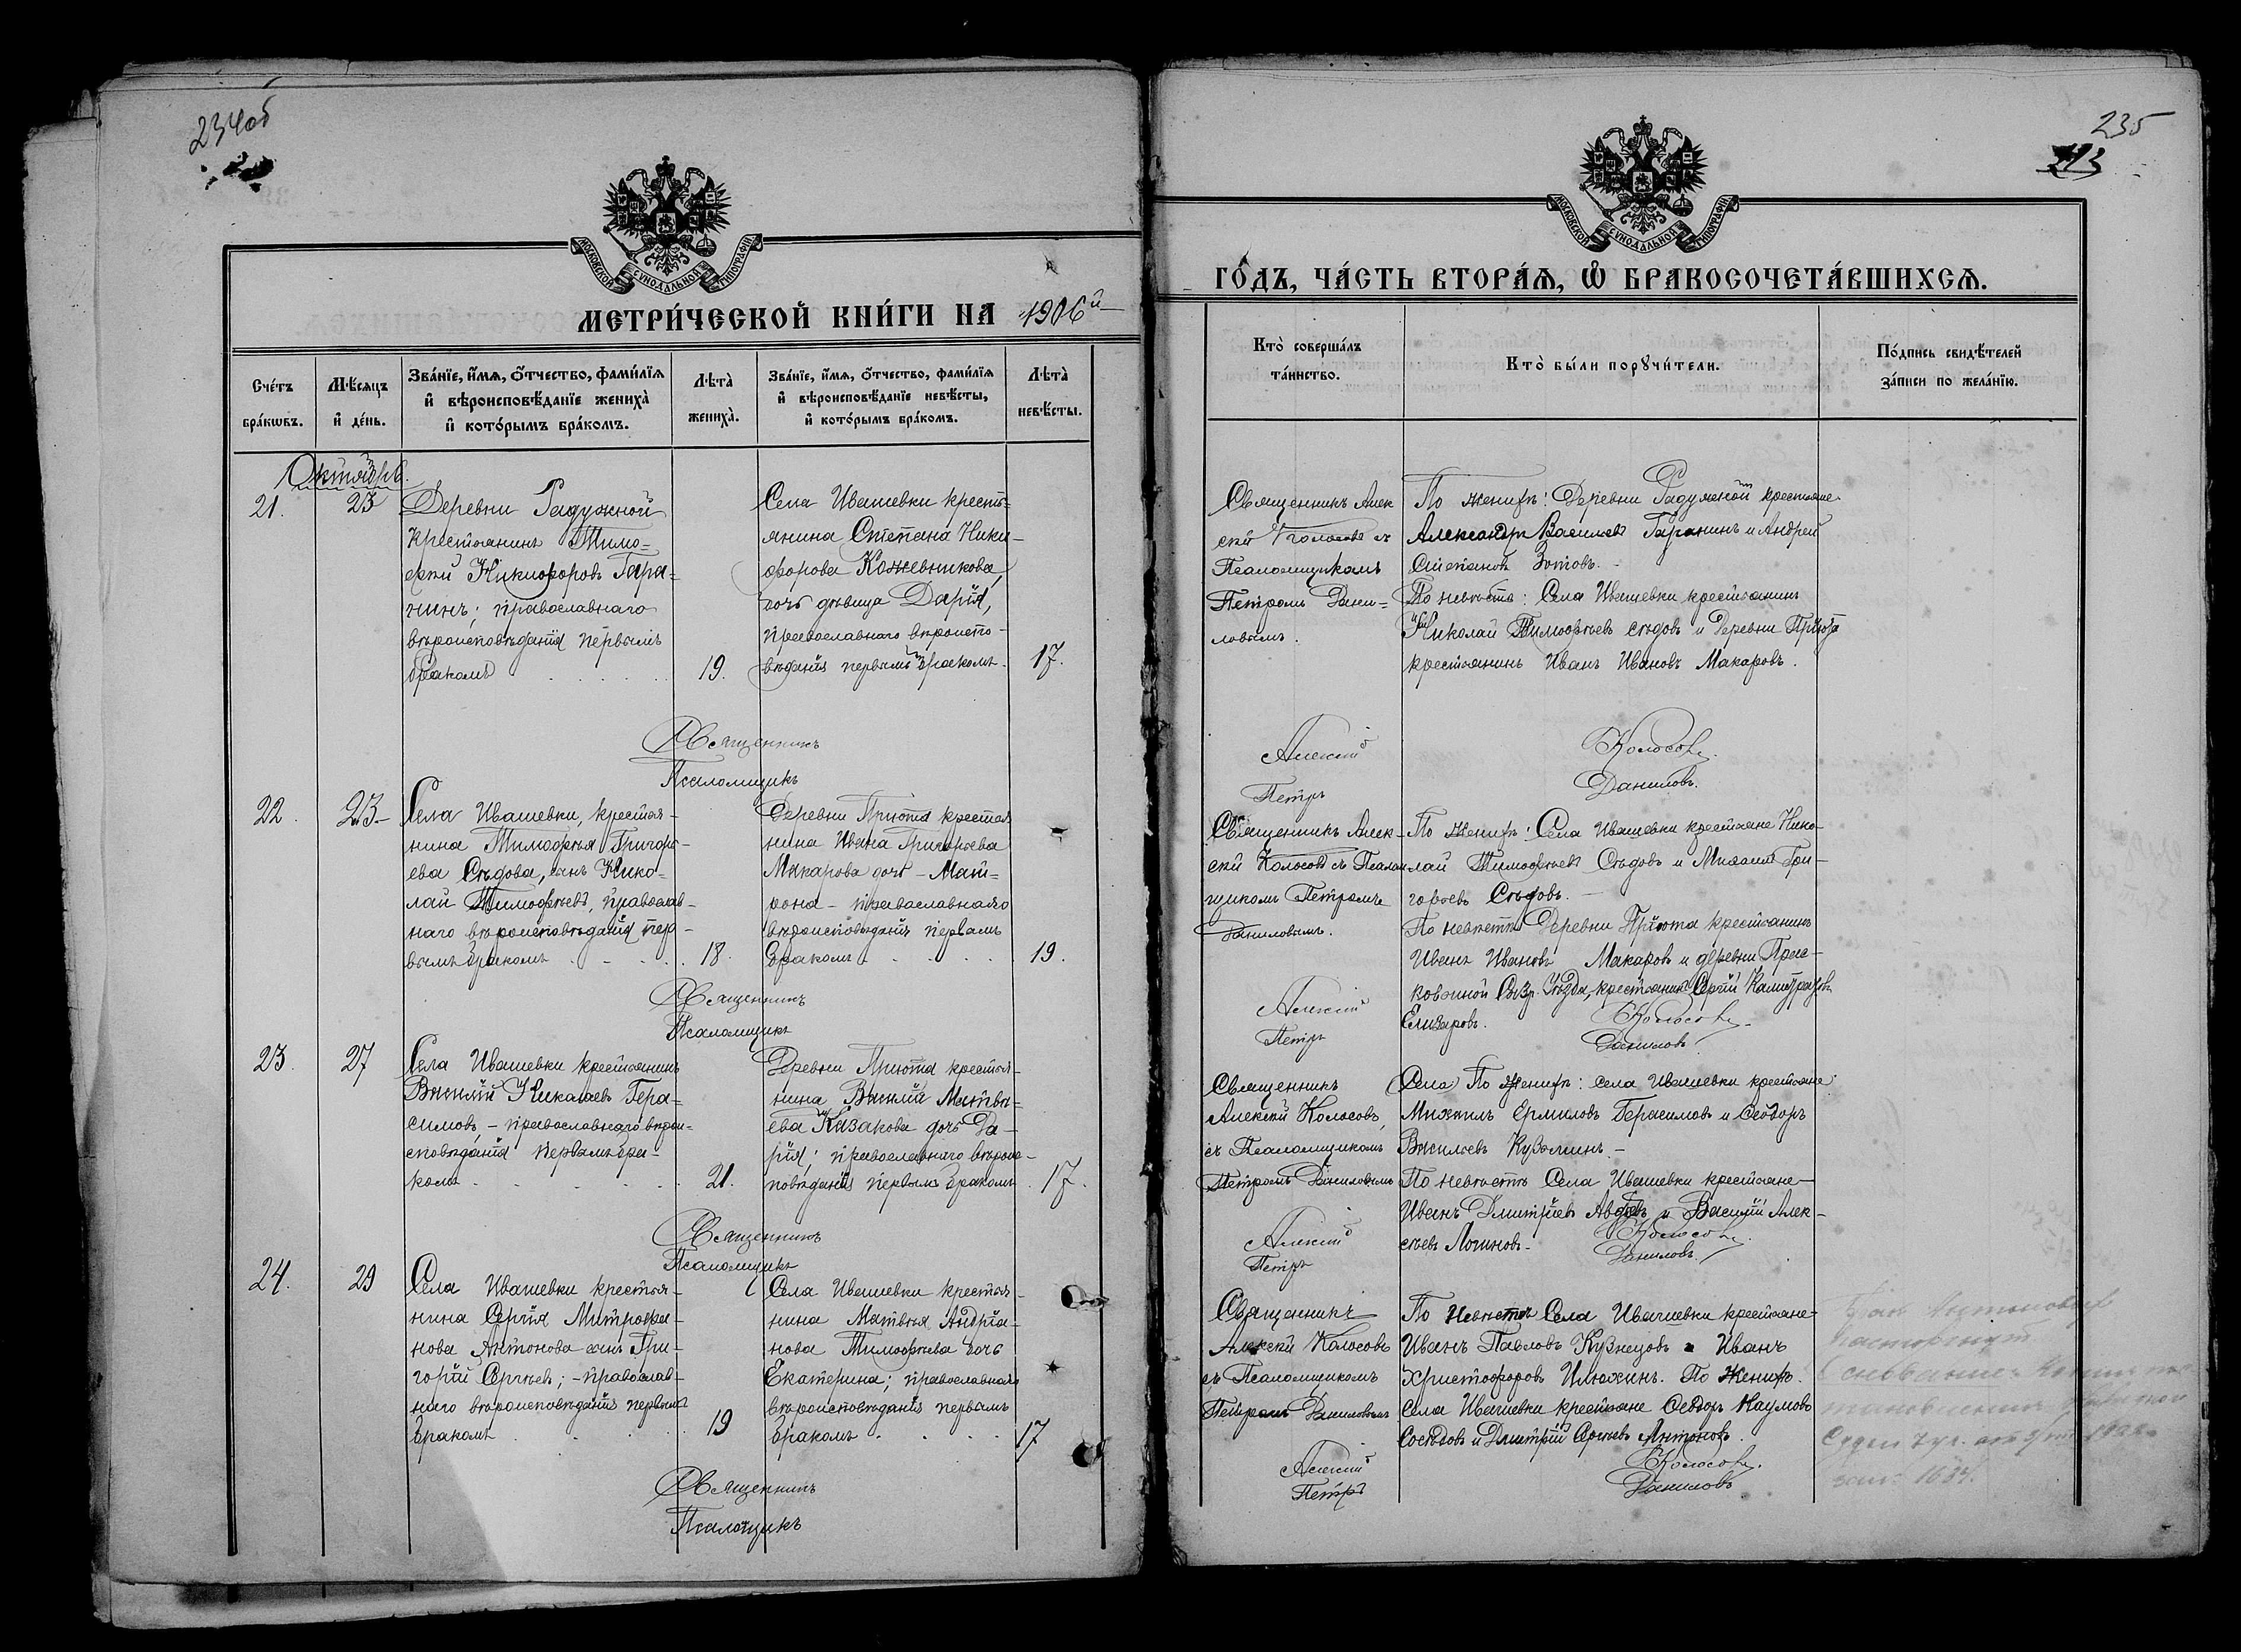 234об
МОСКОВСКОЙ СѴНОДАЛЬНОЙ ТИПОГРАФІИ
МЕТРИ́ЧЕСКОЙ КНИ́ГИ НА 1906й
Сче́тъ бра́кѡвъ.
Мѣ́сяцъ и҆ де́нь.
Зва́нїе, и҆́мѧ, ѻ҆́тчество, фами́лїѧ и҆ вѣроисповѣ́данїе жениха̀ и҆ кото́рымъ бра́комъ.
Лѣта̀ жениха̀.
Зва́нїе, и҆́мѧ, ѻ҆́тчество, фами́лїѧ и҆ вѣроисповѣ́данїе невѣ́сты, и҆ кото́рымъ бра́комъ.
Лѣта̀ невѣ́сты.
Октябрь.
21. 23
Деревни Радужной
крестьянинъ Тимо=
фей Никифоровъ Гара=
нинъ; православнаго
вѣроисповѣданія первымъ
бракомъ
19.
Села Ивашевки кресть=
янина Степана Ники-
форова Кожевникова
дочь дѣвица Дарія,
православнаго вѣроиспо-
вѣданія первымъ бракомъ.
17.
Священникъ
Псаломщикъ
22. 23.-
Села Ивашевки, крестья-
нина Тимофѣя Григорь-
ева Сѣдова, сынъ Нико-
лай Тимофѣевъ, православ-
наго вѣроисповѣданія пер-
вымъ бракомъ
18.
Деревни Пріюта крестья
нина Ивана Григорьева
Макарова дочь - Мат-
рона - православнаго
вѣроисповѣданія первымъ
бракомъ
19.
Священникъ
Псаломщикъ
23. 27
Села Ивашевки крестьянинъ
Василій Николаевъ Гера=
симовъ, - православнаго вѣрои=
сповѣданія первымъ бра-
комъ
21.
Деревни Пріюта крестья-
нина Василія Матвѣ=
ева Казакова дочь Да-
рія; православнаго вѣроис-
повѣданія первымъ бракомъ
17.
Священникъ
Псаломщикъ
24. 29
Села Ивашевки крестья-
нина Сергія Митрофа-
нова Антонова сынъ Гри-
горій Сергѣевъ; - православ-
наго вѣроисповѣданія первымъ
бракомъ
19
Села Ивашевки крестья-
нина Матвѣя Андріа-
нова Тимофѣева дочь
Екатерина; православнаго
вѣроисповѣданія первымъ
бракомъ
17
Священникъ
Псаломщикъ
235
213
МОСКОВСКОЙ СѴНОДАЛЬНОЙ ТИПОГРАФІИ
ГО́ДЪ, ЧА́СТЬ ВТОРА́Ѧ, Ѡ҆ БРАКОСОЧЕТА́ВШИХСѦ.
Кто̀ соверша́лъ та́инство.
Кто̀ бы́ли порꙋчи́тели.
По́дпись свидѣ́телей за́писи по жела́нїю.
Священникъ Алек
сѣй Колосовъ съ
Псаломщикомъ
Петромъ Дани=
ловымъ.
По женихѣ: Деревни Радужной крестьяне
Александръ Васильевъ Гаранинъ и Андрей
Степановъ Зотовъ.
По невѣстѣ: Села Ивашевки крестьянинъ
Николай Тимофѣевъ Сѣдовъ и Деревни Пріюта
крестьянинъ Иванъ Ивановъ Макаровъ.
Алексій Колосовъ.
Петръ Даниловъ.
Священникъ Алек-
сѣй Колосовъ съ Псалом
щикомъ Петромъ
Даниловымъ.
По женихѣ: Села Ивашевки крестьяне Нико-
лай Тимофѣевъ Сѣдовъ и Михаилъ Гри-
горьевъ Сѣдовъ. -
По невѣстѣ Деревни Пріюта крестьянинъ
Иванъ Ивановъ Макаровъ и деревни
Сызр. Уѣзда, крестьянинъ Сергій
Елизаровъ.
Алексій Колосовъ.
Петръ Даниловъ
Священникъ
Алексѣй Колосовъ,
съ Псаломщикомъ
Петромъ Даниловымъ
Села По женихѣ: села Ивашевки крестьяне
Михаилъ Ермиловъ Герасимовъ и Ѳеодоръ
Васильевъ Кузьминъ. -
По невѣстѣ Села Ивашевки крестьяне
Иванъ Дмитріевъ и Василій Алек-
сѣевъ Логиновъ.
Алексій Колосовъ.
Петръ Даниловъ.
Священникъ
Алексѣй Колосовъ
съ Псаломщикомъ
Петромъ Даниловымъ
По Невѣстѣ Села Ивашевки крестьяне
Иванъ Павловъ Кузнецовъ и Иванъ
Христофоровъ Илюхинъ. По Женихѣ.
Села Ивашевки крестьяне Ѳеодоръ Наумовъ
Сосѣдовъ и Дмитрій Сергѣевъ Антоновъ.
Алексій Колосовъ.
Петръ Даниловъ
Брак Антоновых
расторгнут